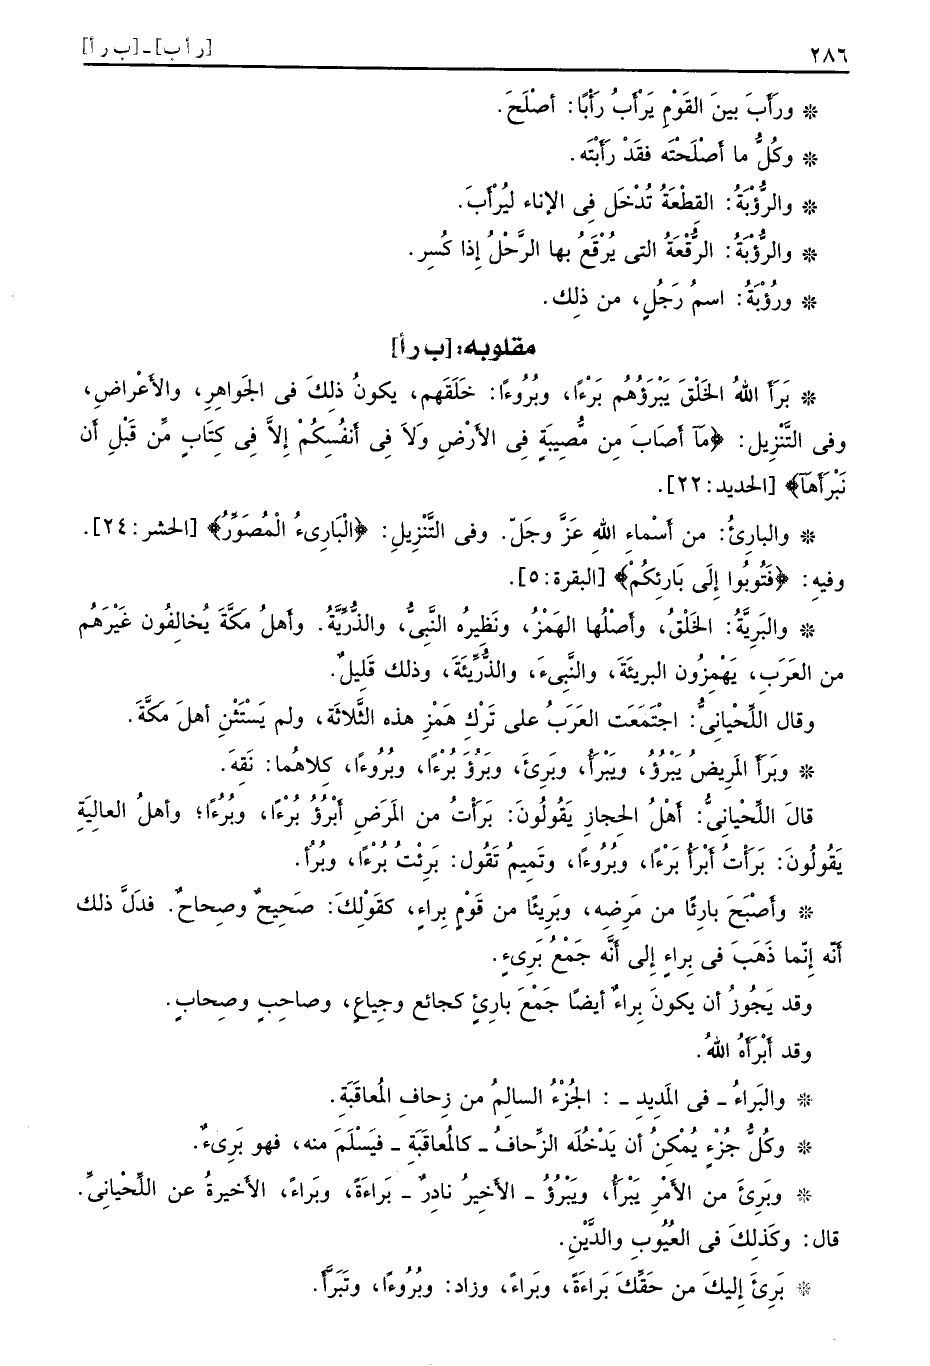 ٢٨٦ [ر أ ب] ـ [ب ر أ]
* ورَأَبَ بينَ القَوْمِ يَرْأَبُ رَأْبًا: أصْلَحَ.
* وكُلُّ ما أَصْلَحْتَه فقَدْ رَأَبْتَه.
* والرُّؤْبَةُ: القطْعَةُ تُدْخَل فى الإناء ليُرْأَبَ.
* والرُّؤْبَةُ: الرُّقْعَةُ التى يُرْقَعُ بها الرَّحْلُ إذا كُسِر.
* ورُؤْبَةُ: اسمُ رَجُلٍ، من ذلِك.
مقلوبه: [ب ر أ]
* بَرَأَ اللهُ الخَلْقَ يَبْرَؤُهُم بَرْءًا، وبُرُوءًا: خَلَقَهم، يكونُ ذلِكَ فى الجَواهِرِ، والأَعْراضِ،
وفى التَّنْزِيل: ﴿مَآ أَصَابَ مِن مُّصِيبَةٍ فِى الأَرْضِ وَلاَ فِى أَنفُسِكُمْ إِلاَّ فِى كِتَابٍ مِّن قَبْلِ أَن
نَبْرَأَهَآ﴾ [الحديد: ٢٢].
* والبارِئُ: من أَسْماءِ اللهِ عَزَّ وجَلّ. وفى التَّنْزِيلِ: ﴿الْبَارِىءُ الْمُصَوِّرُ﴾ [الحشر: ٢٤].
وفيهِ: ﴿فَتُوبُوا إِلَى بَارِئِكُمْ﴾ [البقرة: ٥].
* والبَرِيَّةُ: الخَلْقُ، وأصْلُها الهَمْزُ، ونَظِيرُه النَّبِىُّ، والذُّرِّيَّةُ. وأهلُ مكَّةَ يُخالِفُون غَيْرَهُم
من العَرَبِ، يَهْمِزُون البريئَةَ، والنَّبِىءَ، والذُّرِّيئَةَ، وذلك قَلِيلٌ.
وقال اللِّحْيانِىُّ: اجْتَمَعَت العَرَبُ على تَرْكِ هَمْزِ هذه الثَّلاثَة، ولم يَسْتَثْنِ أهلَ مكَّةَ.
* وبَرَأَ المَرِيضُ يَبْرُؤُ، ويَبْرَأُ، وبَرِئَ، وبَرُؤَ بُرْءًا، وبُرُوءًا، كلاهُما: نَقِهَ.
قالَ اللِّحْيانِىُّ: أَهْلُ الحِجازِ يَقُولُونَ: بَرَأْتُ من المَرَضِ أَبْرُؤُ بُرْءًا، وبُرُءًا؛ وأهلُ العالِيَةِ
يَقُولُونَ: بَرَأْتُ أَبْرَأُ بَرْءًا، وبُرُوءًا، وتَمِيمُ تَقُول: بَرِئْتُ بُرْءًا، وبُرُأً.
* وأصْبَحَ بارِئًا من مَرَضِه، وبَرِيئًا من قَوْمٍ بِراءٍ، كقَوْلِكَ: صَحِيحٌ وصِحاح. فدَلَّ ذلك
أنّه إنّما ذَهَبَ فى بِراءٍ إلى أنَّه جَمْعُ بَرِىءٍ.
وقد يَجُوزُ أن يكونَ بِراءٌ أيضًا جَمْعَ بارِئٍ كجائع وجِياعٍ، وصاحِبٍ وصِحابٍ.
وقد أَبْرَأَهُ اللهُ.
* والبَراءُ ـ فى المَدِيدِ ـ : الجُزْءُ السالِمُ من زِحافِ المُعاقَبَةِ.
* وكُلُّ جُزْءٍ يُمْكِنُ أن يَدْخُلَه الزِّحافُ ـ كالمُعاقَبَةِ ـ فيَسْلَمَ منه، فهو بَرِىءٌ.
* وبَرِئَ من الأَمْرِ يَبْرَأُ، ويَبْرُؤُ ـ الأخيرُ نادرٌ ـ بَراءَةً، وبَراءً، الأخيرةُ عن اللِّحْيانِىِّ.
قال: وكَذلِكَ فى العُيُوبِ والدَّيْنِ.
* بَرِئَ إليكَ من حَقِّكَ بَراءَةً، وبَراءً، وزاد: وبُرُوءًا، وتَبَرَّأَ.